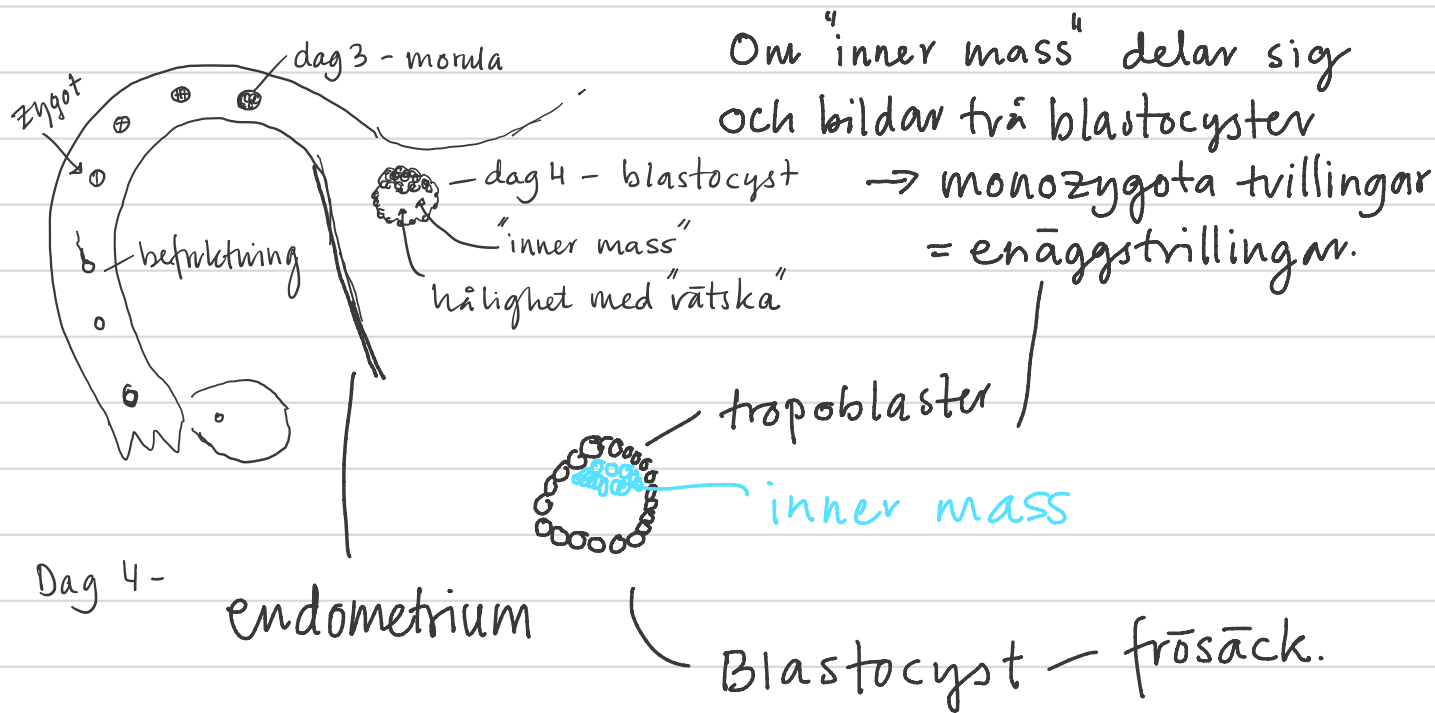 dag 3 - morula
zygot
dag 4 - blastocyst
"inner mass"
hålighet med "vätska"
befruktning
Om "inner mass" delar sig
och bildar två blastocyster
→ monozygota tvillingar
= enäggstrillingar.
tropoblaster
inner mass
Dag 4 -
endometrium
Blastocyst - frösäck.